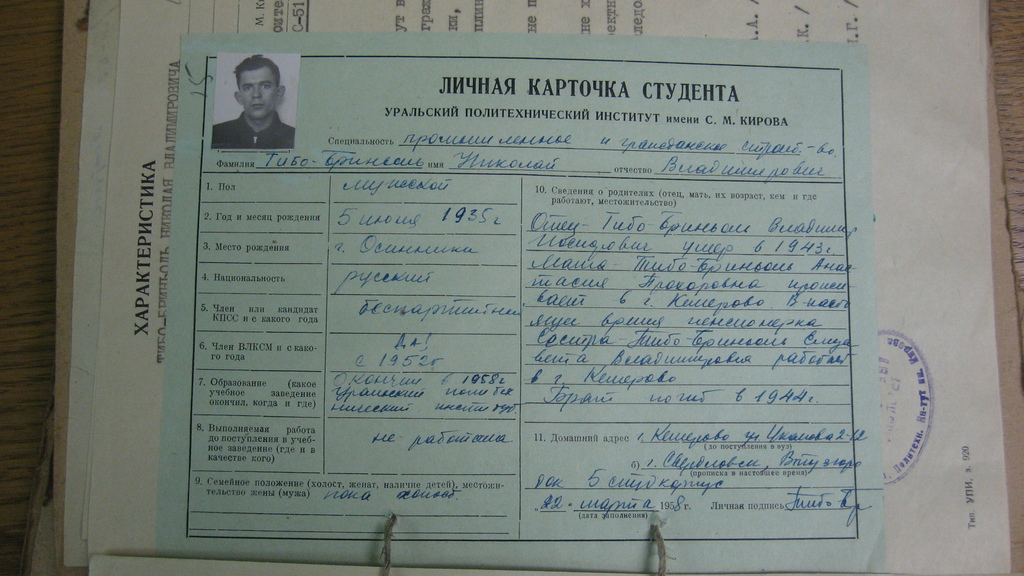 ЛИЧНАЯ КАРТОЧКА СТУДЕНТА
УРАЛЬСКИЙ ПОЛИТЕХНИЧЕСКИЙ ИНСТИТУТ имени С. М. КИРОВА
Специальность промышленное и гражданское строит-во
Фамилия Тибо-Бриньоль имя Николай отчество Владимирович
1. Пол мужской
2. Год и месяц рождения 5 июня 1935г
3. Место рождения г. Осинники
4. Национальность русский
5. Член или кандидат КПСС и с какого года беспартийный
6. Член ВЛКСМ и с какого года Да! с 1952г
7. Образование (какое учебное заведение окончил, когда и где) Окончил в 1958г Уральский политехнический институт
8. Выполняемая работа до поступления в учебное заведение (где и в качестве кого) не работала
9. Семейное положение (холост, женат, наличие детей), местожительство жены (мужа) пока холост
10. Сведения о родителях (отец, мать, их возраст, кем и где
работают, местожительство)
Отец- Тибо-Бриньоль Владимир
Иосифович умер в 1943г.
Мама Тибо-Бриньоль Анас-
тасия Прохоровна прожи-
вает в г. Кемерово. В насто
ящее время пенсионерка
Сестра-Тибо-Бриньоль
Владимировна работает
в г. Кемерово
Брат погиб в 1944г.
11. Домашний адрес г. Кемерово ул 2-12
(до поступления в вуз)
б) г. Свердловск,
(прописка в настоящее время)
5 студ корпус
„22" марта 1958г. Личная подпись Тибо Бр
(дата заполнения)
ХАРАКТЕРИСТИКА
ТИБО-БРИНЬОЛЬ НИКОЛАЯ ВЛАДИМИРОВИЧА
Тип. УПИ, з. 920